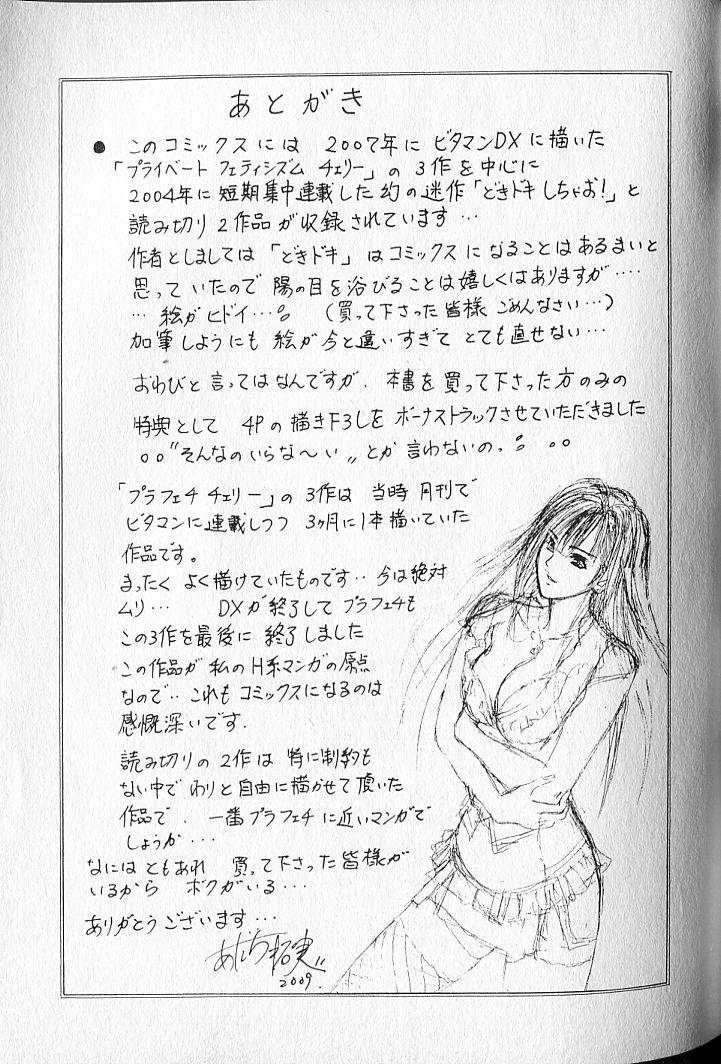 あとがき
● このコミックスには 2007年に ビタマンDXに描いた
「プライベート フェティシズム チェリー」の 3作を中心に
2004年に短期集中連載した 約の迷作「どきドキしちゃお!」と
読み切り 2作品が収録されています…
作者としましては「どきドキ」はコミックスになることはあるまいと
思っていたので 陽の目を浴びることは嬉しくはありますが‥‥
… 絵がヒドイ…。 (買って下さった皆様 ごめんなさい…)
加筆しようにも 絵が今と違いすぎて とても直せない…
おわびと言ってはなんですが、本書を買って下さった方のみの
特典として 4Pの描き下ろしをボーナストラックさせていただきました
。。"そんなのいらな〜い〃とか言わないの。 。。
「プラフェチ チェリー」の 3作は 当時 月刊で
ビタマンに連載しつつ 3ヶ月に1本描いていた
作品です。
まったく よく描けていたものです‥今は絶対
ムリ… DXが終了して プラフェチも
この3作を最後に 終了しました
この作品が 私のH系マンガの原点
なので‥これも コミックスになるのは
感慨深いです.
読み切りの 2作は 特に制約も
ない中で わりと自由に描かせて頂いた
作品で、一番プラフェチに近いマンガで
しょうか…
なにはともあれ 買って下さった皆様が
いるから ボクがいる…
ありがとうございます…
2009.